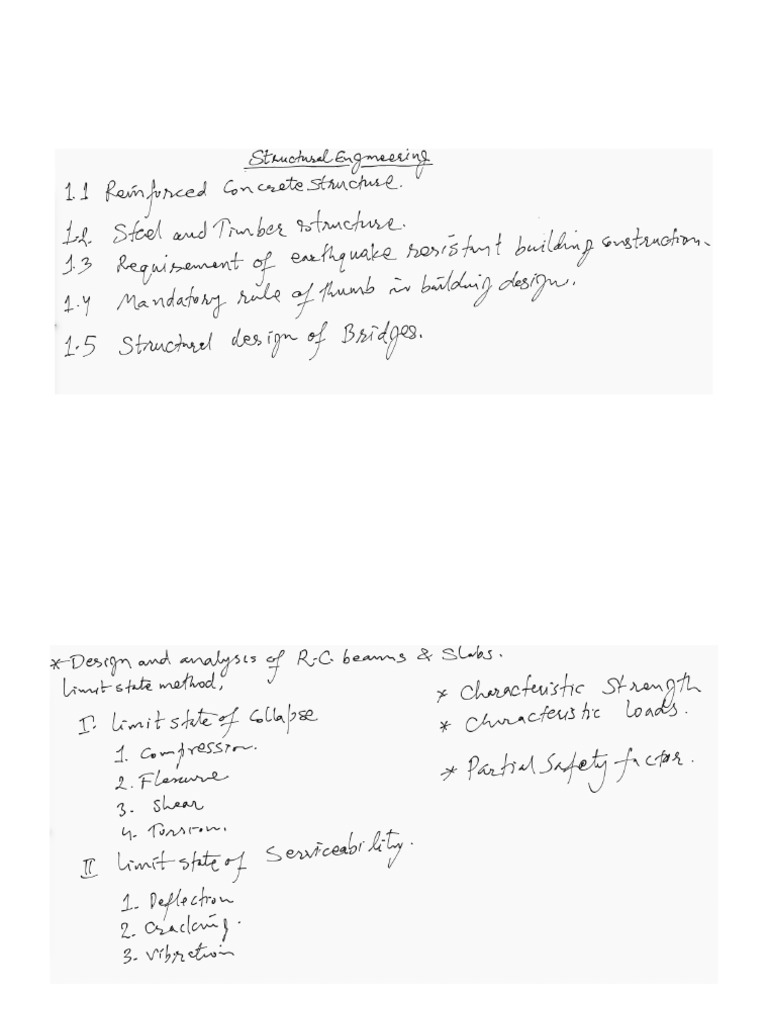 Structural Engineering
1.1 Reinforced Concrete Structure.
1.2. Steel and Timber structure.
1.3 Requirement of earthquake resistant building construction.
1.4 Mandatory rule of thumb in building design.
1.5 Structural design of Bridges.
* Design and analysis of R.C. beams & Slabs.
Limit state method,
I. Limit state of Collapse
1. Compression.
2. Flexure
3. Shear
4. Torsion.
II Limit state of Serviceability.
1. Deflection
2. Cracking.
3. Vibration
* Characteristic Strength
* Characteristic loads.
* Partial Safety factor.